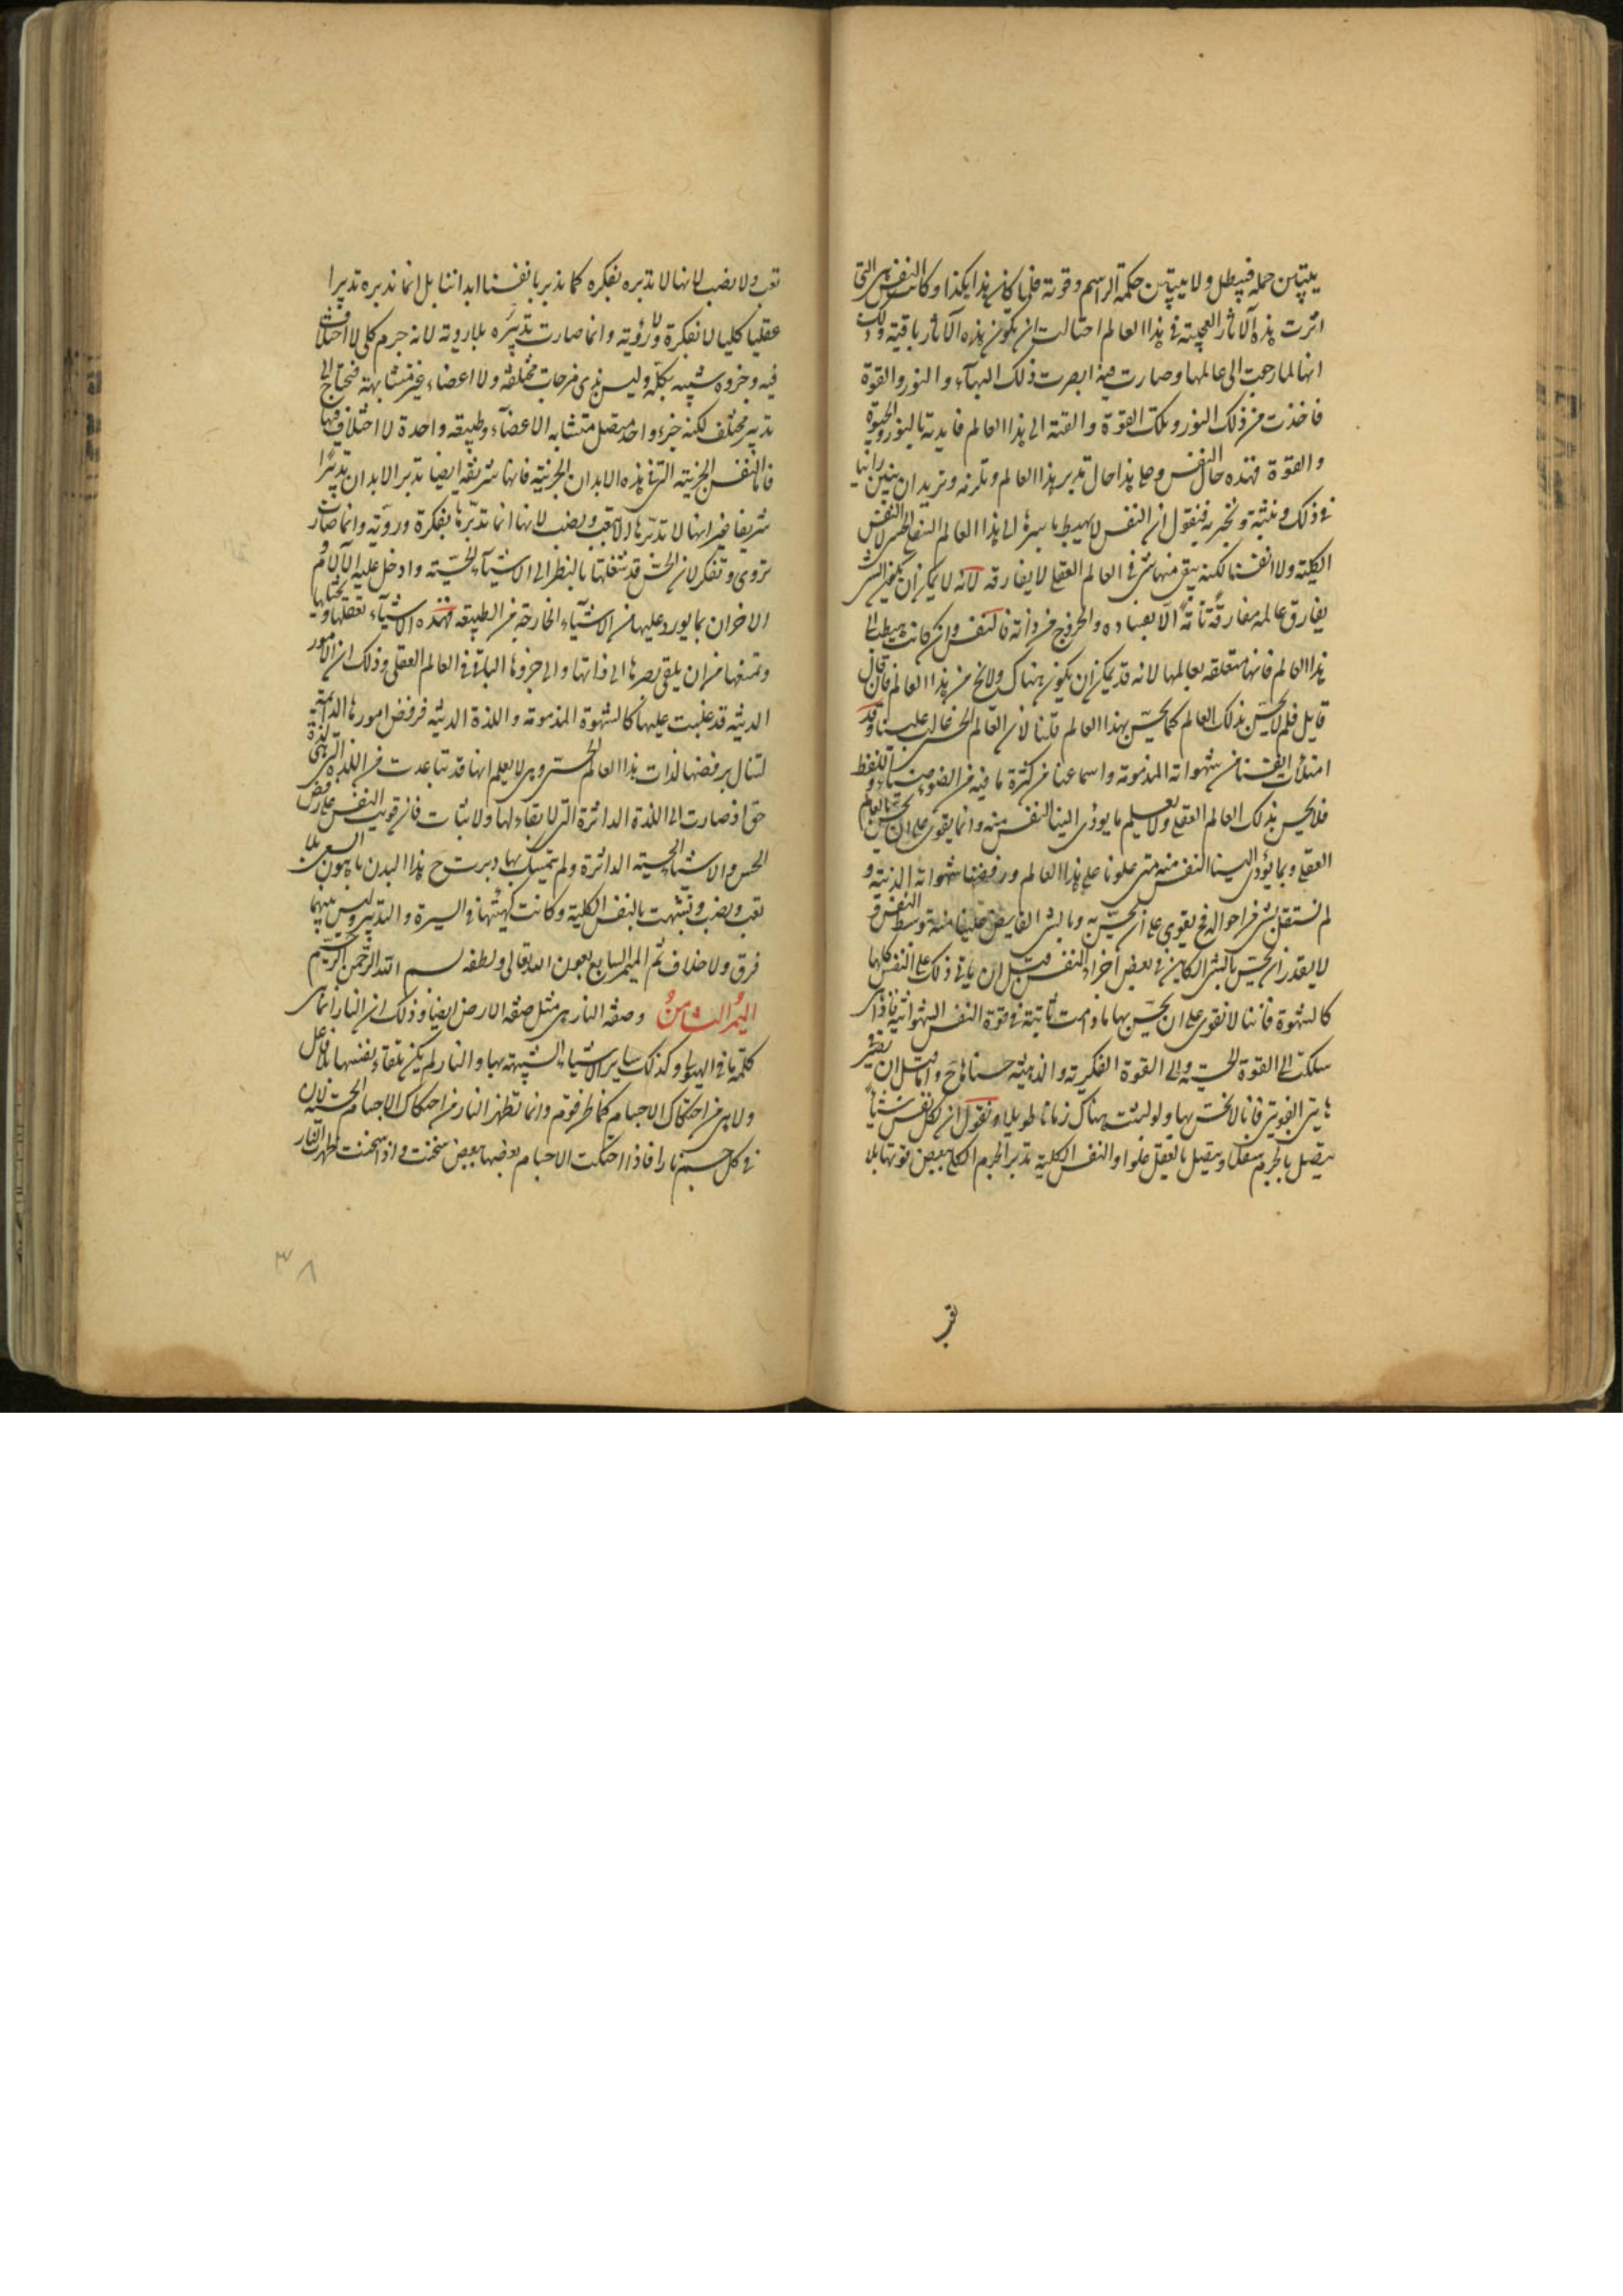 يتباين جملة فيبطل ولا يتباين حكمة الراسم وقوته فلما كان هذا هكذا وكانت النفس هي التي
اثرت هذه الآثار العجيبة في هذا العالم احتالت ان تكون هذه الآثار باقية وذلك
انها لما رجعت الى عالمها وصارت فيه ابصرت ذلك البهاء والنور والقوة
فاخذت من ذلك النور وتلك القوة والقته الى هذا العالم فايدته بالنور والحيوة
والقوة فهذه حال النفس وعلى هذا حال تدبر هذا العالم وتلزمه ونريد ان نبين راينا
في ذلك ونثبته ونخبر به فنقول ان النفس لا يهبط باسرها الى هذا العالم السفلي الحسي لا النفس
الكلية ولا انفسنا لكنه يبقى منها شئ في العالم العقلي لا يفارقه لانه لا يمكن ان يكون الشئ
يفارق عالمه مفارقة تامة الا بفساده والخروج من ذاته فالنفس وان كانت هبطت الى
هذا العالم فانها متعلقة بعالمها لانه قد يمكن ان يكون هناك ولا يخ من هذا العالم فان قال
قايل فلم لا نحس بذلك العالم كما نحس بهذا العالم قلنا لان العالم الحسي غالب علينا وقد
امتلأت انفسنا من شهواته المذمومة واسماعنا من كثرة ما فيه من الضوضاء واللفظ
فلا نحس بذلك العالم العقلي ولا نعلم ما يودى الينا النفس منه وانما يقوى على ان نحس بالعالم
العقلي وبما يؤدى الينا النفس منه متى علونا على هذا العالم ورفضنا شهواته الدنية و
لم نشتغل بشئ من احواله فح نقوى على ان نحس به وبالشئ الفايض علينا منه بتوسط النفس و
لا نقدر ان نحس بالشئ الكاين في بعض اجزاء النفس قبل ان ياتي ذلك على النفس كلها
كالشهوة فاننا لا نقوى على ان نحس بها ما دامت ثابتة في قوة النفس الشهوانية فاذا هي
سلكت الى القوة الحسية والى القوة الفكرية والذهنية حسسناها ح واما قبل ان تصير في
هاتين القوتين فانا لا نحس بها ولو لبثت هناك زمانا طويلا ونقول ان لكل نفس شيئا
يتصل بالجرم سفلا ويتصل بالعقل علوا والنفس الكلية تدبر الجرم الكلي ببعض قوتها بلا
تعب ولا نصب لانها لا تدبره بفكرة كما تدبر انفسنا ابداننا بل انما تدبره تدبيرا
عقليا كليا لا بفكرة ولا رؤية وانما صارت تدبره بلا روية لانه جرم كلي لا اختلاف
فيه وجزوه شبيه بكله وليس بذي مزاجات مختلفة ولا اعضاء غير متشابهة فتحتاج الى
تدبير مختلف لكنه جزء واحد متصل متشابه الاعضاء وطبيعة واحدة لا اختلاف فيها
فاما النفس الجزئية التي في هذه الابدان الجزئية فانها شريفة ايضا تدبر الابدان تدبيرا
شريفا غير انها لا تدبرها الا بتعب ونصب لانها انما تدبرها بفكرة وروية وانما صارت
تروى وتفكر لان الحس قد شغلها بالنظر الى الاشياء الحسية وادخل عليه الآلام و
الاحزان بما يورد عليها من الاشياء الخارجة من الطبيعة فهذه الاشياء تعقلها وتخيلها
وتمنعها من ان يلقى بصرها الى ذاتها والى جزوها الباقي في العالم العقلي وذلك ان الامور
الدنية قد غلبت عليها كالشهوة المذمومة واللذة الدنية فرفض امورها الدائمة
لتنال برفضها لذات هذا العالم الحسي وهي لا يعلم انها قد تباعدت من اللذة التي هي لذة
حق اذ صارت الى اللذة الداثرة التي لا بقاء لها ولا ثبات فان قويت النفس على رفض
الحس والاشياء الحسية الداثرة ولم يتمسك بها دبرت ح هذا البدن باهون السعي بلا
تعب ونصب وتشبهت بالنفس الكلية وكانت كهيئتها في السيرة والتدبير وليس بينهما
فرق ولا خلاف تم الميمر السابع بعون الله تعالى ولطفه بسم الله الرحمن الرحيم
الميمر الثامن وصفة النار هي مثل صفة الارض ايضا وذلك ان النار انما هي
كلمة ما في الهيولى وكذلك ساير الاشياء الشبيهة بها والنار لم يكن من تلقاء نفسها بلا فاعل
ولا هي من احتكاك الاجسام كما ظن قوم وانما تظهر النار من احتكاك الاجسام الحسية لان
في كل جسم نارا فاذا احتكت الاجسام بعضها ببعض سخنت واذا سخنت ظهرت النار
٣٨